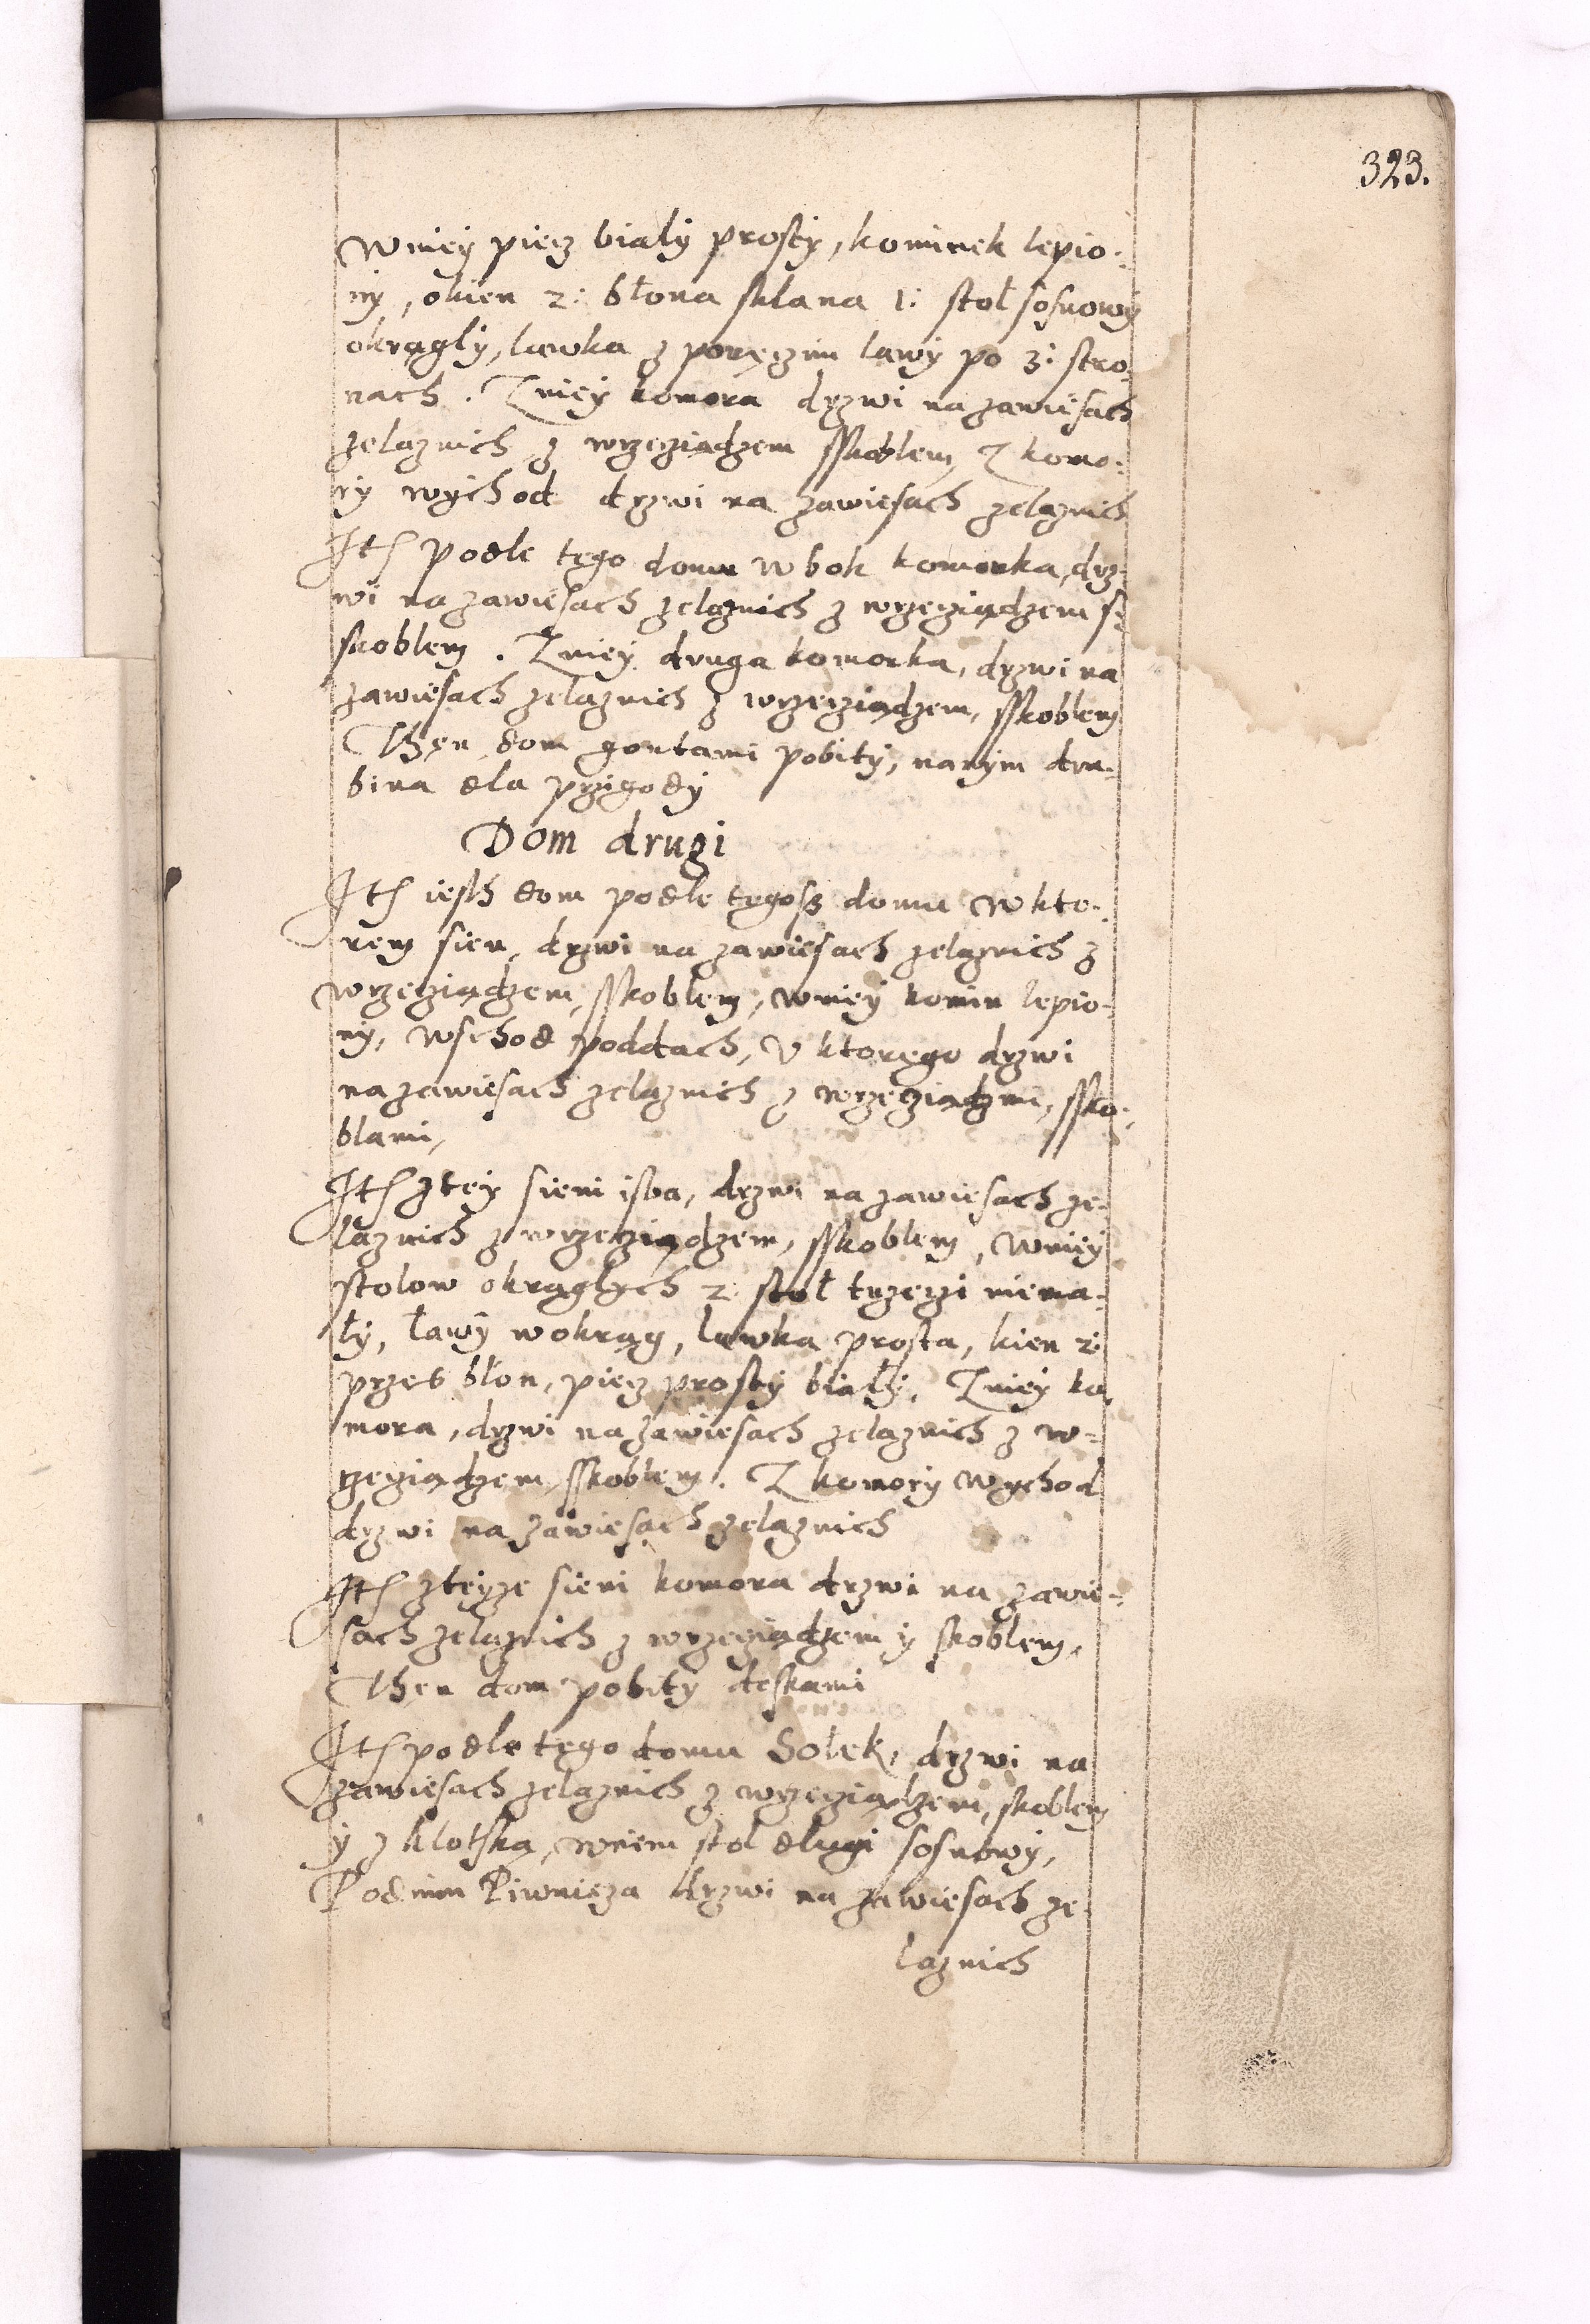 323.
wniey piecz biały prosty, kominek lepio:
ny, okien 2: błona sklana 1: stoł sosnowy
okrągły, ławka z poręczim ławy po 3: stro:
nach. Z niey komora drzwi na zawiesach
zelaznich z wrzecziądzem sskoblem, Z komo:
ry wychod drzwi na zawiesach zelaznich
Itħ podle tego domu w bok komorka, drz:
wi na zawiesach zelaznich z wrzecziądzem s:
skoblem. Z niey druga komorka, drzwi na
zawiesach zelaznich z wrzecziądzem, sskoblem
Then dom gontami pobity, nanym dra:
bina dla przigody
Dom drugi
Itħ iesth dom podle tegosz domu w kto:
rem sien, drzwi na zawiesach zelaznich z
wrzecziądzem, sskoblem, wniey komin lepio:
ny, wschod poddach, v ktorego drzwi
na zawiesach zelaznich z wrzecziądzmi, ssko:
blami,
Itħ ztey sieni isba, drzwi na zawiesach ze:
laznich z wrzecziądzem, sskoblem, wniey
stolow okrągłych 2: stoł trzeczi niema:
ły, ławy wokrąg, ławka prosta, kien 2:
przes błon, piecz prosty biały. Z niey ko:
mora, drzwi na zawiesach zelaznich z w:
rzecziądzem, sskoblem. Z komory wychod
drzwi na zawiesach zelaznich
Itħ zteyze sieni komora drzwi na zawie:
sach zelaznich z wrzecziądzem y skoblem,
Then dom pobity deskami
Itħ podle tego domu Sołek, drzwi na
zawiesach zelaznich z wrzecziądzem, skoblem
y z klotską, wniem stol dlugi sosnowy,
Podnim Piwnicza drzwi na zawiesach ze:
laznich